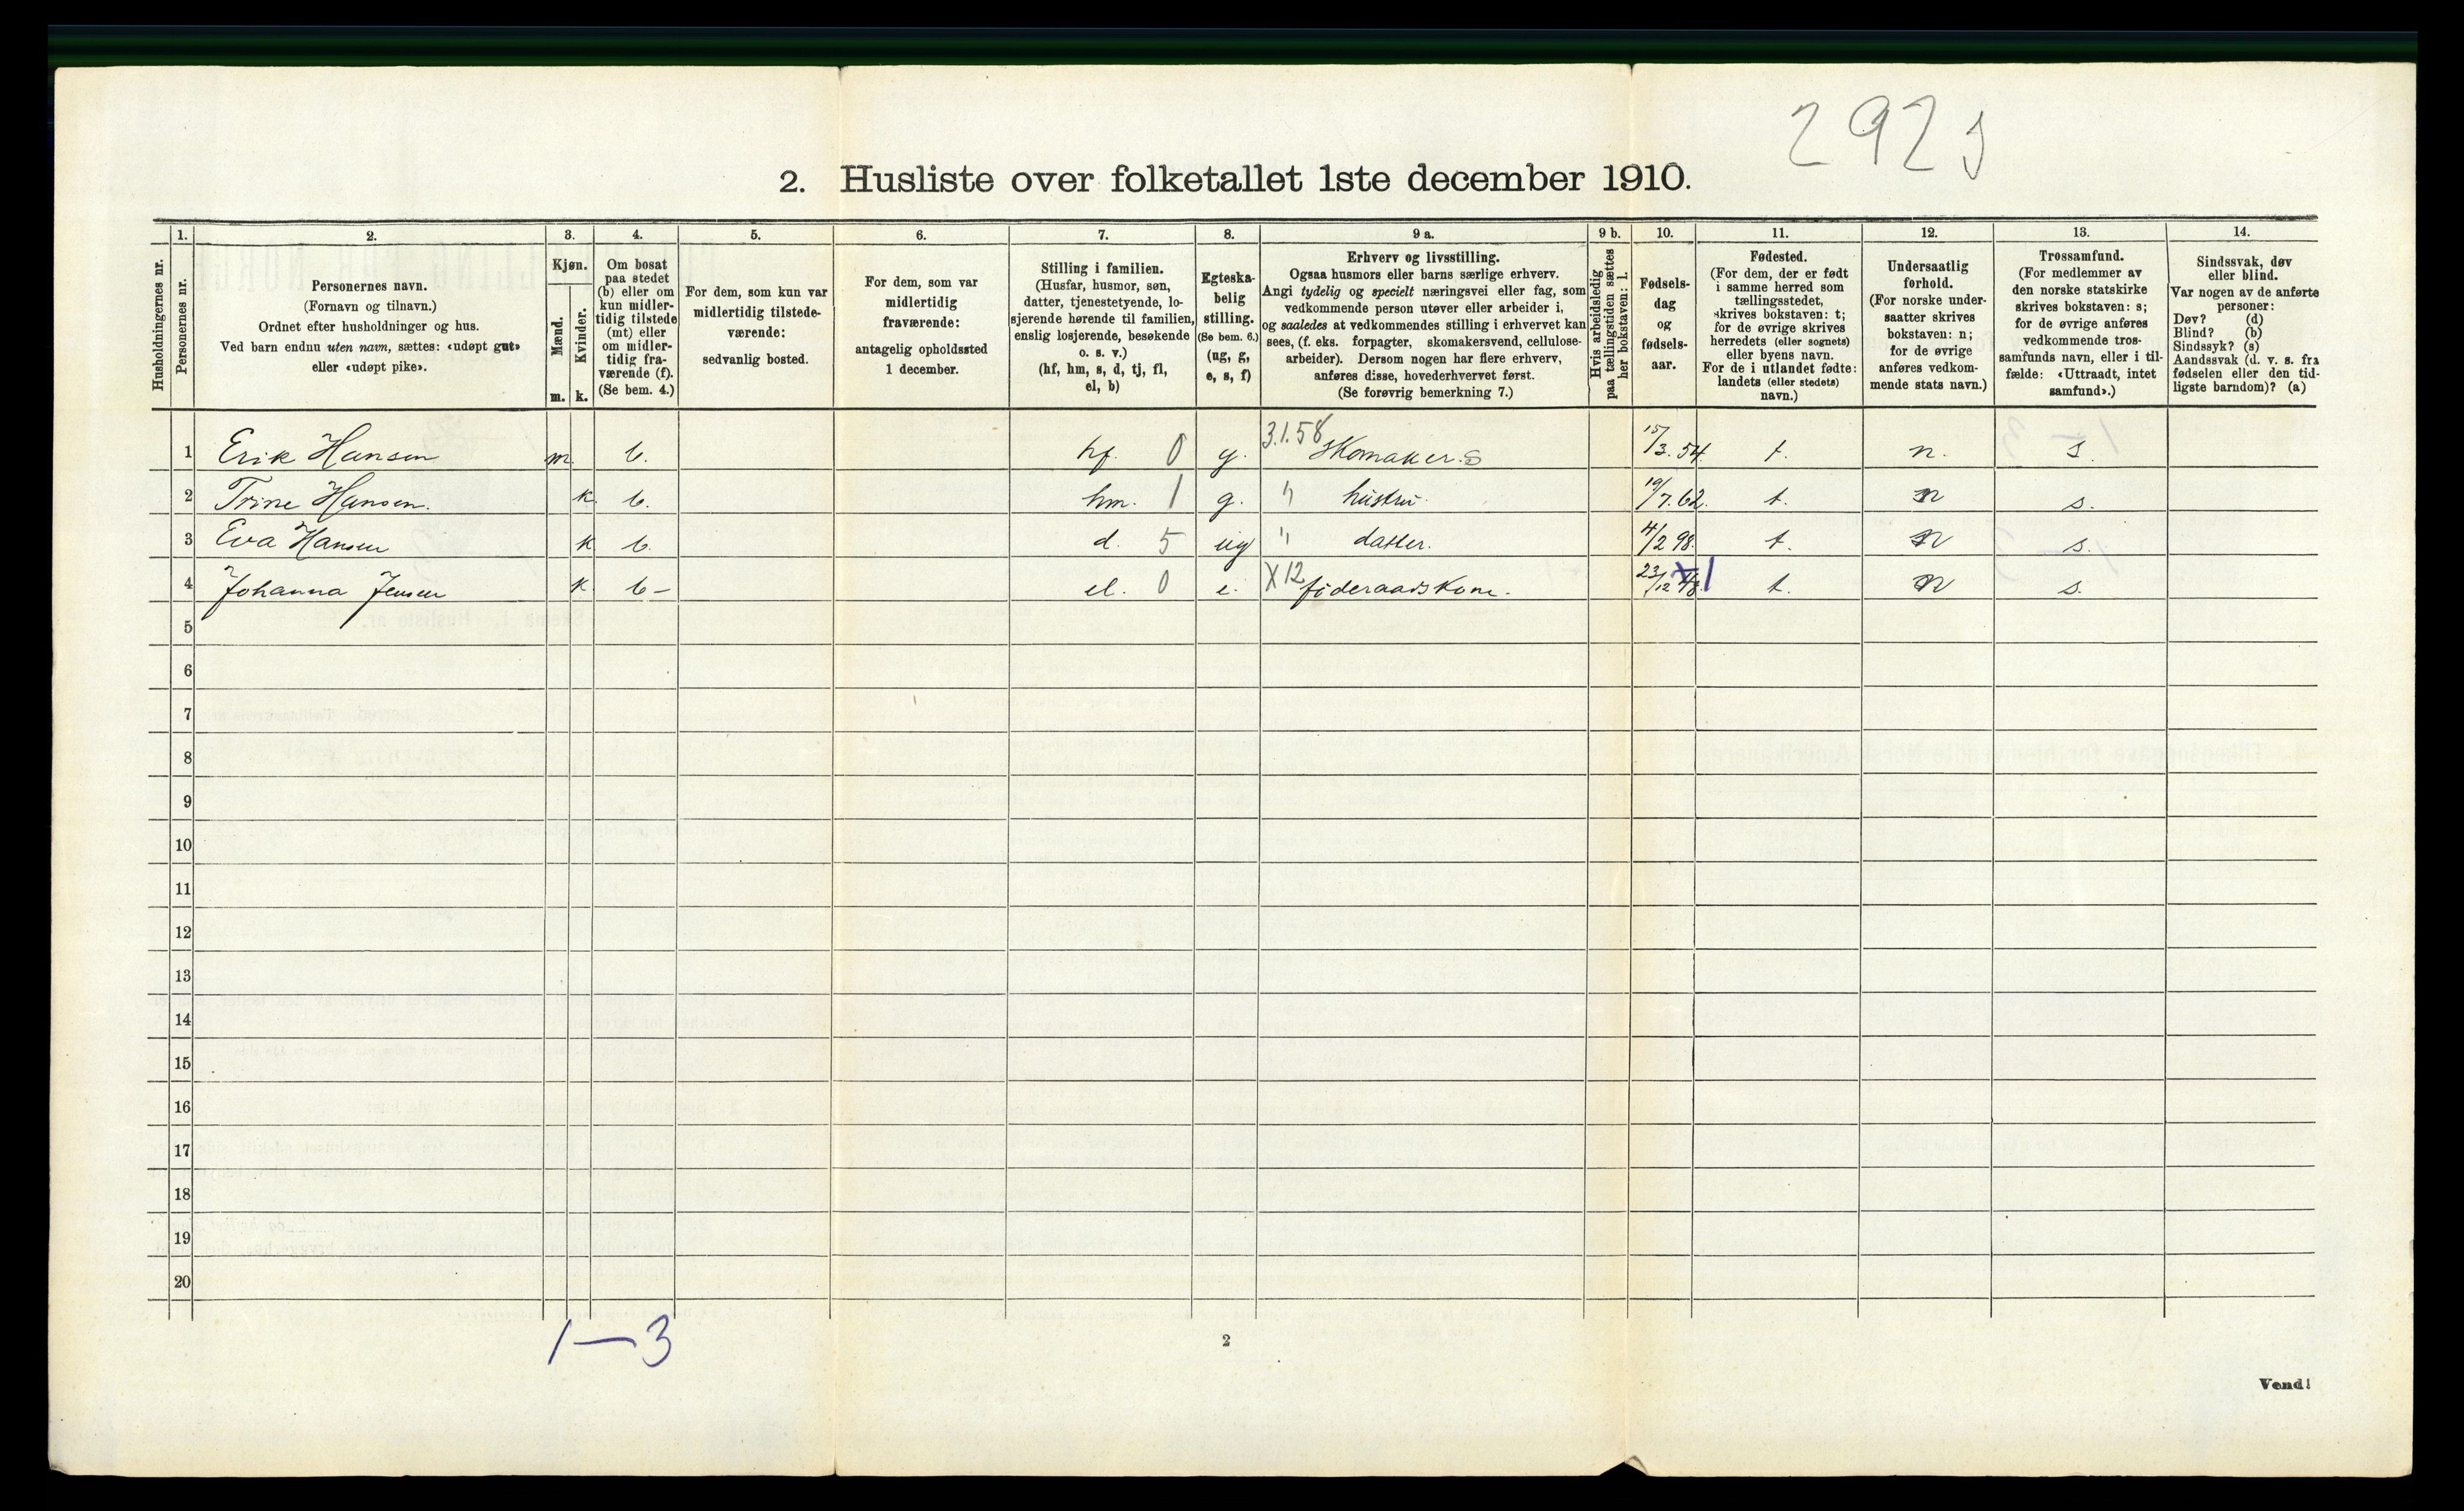 292
2. Husliste over folketallet 1ste december 1910.
Husholdningernes nr.
1.
Personernes nr.
2.
Personernes navn.
(Fornavn og tilnavn.)
Ordnet efter husholdninger og hus.
Ved barn endnu uten navn, sættes: «udøpt gut»
eller «udøpt pike».
3.
Kjøn.
Mænd.
Kvinder.
m. k.
4.
Om bosat
paa stedet
(b) eller om
kun midler-
tidig tilstede
(mt) eller
om midler-
tidig fra-
værende (f).
(Se bem. 4.)
5.
For dem, som kun var
midlertidig tilstede-
værende:
sedvanlig bosted.
6.
For dem, som var
midlertidig
fraværende:
antagelig opholdssted
1 december.
7.
Stilling i familien.
(Husfar, husmor, søn,
datter, tjenestetyende, lo-
sjerende hørende til familien,
enslig losjerende, besøkende
o. s. v.)
(hf, hm, s, d, tj, fl,
el, b)
8.
Egteska-
belig
stilling.
(Se bem. 6.)
(ug, g,
e, s, f)
9 a.
Erhverv og livsstilling.
Ogsaa husmors eller barns særlige erhverv.
Angi tydelig og specielt næringsvei eller fag, som
vedkommende person utøver eller arbeider i,
og saaledes at vedkommendes stilling i erhvervet kan
sees, (f. eks. forpagter, skomakersvend, cellulose-
arbeider). Dersom nogen har flere erhverv,
anføres disse, hovederhvervet først.
(Se forøvrig bemerkning 7.)
9 b.
Hvis arbeidsledig
paa tællingstiden sættes
her bokstaven: l.
10.
Fødsels-
dag
og
fødsels-
aar.
11.
Fødested.
(For dem, der er født
i samme herred som
tællingsstedet,
skrives bokstaven: t;
for de øvrige skrives
herredets (eller sognets)
eller byens navn.
For de i utlandet fødte:
landets (eller stedets)
navn.)
12.
Undersaatlig
forhold.
(For norske under-
saatter skrives
bokstaven: n;
for de øvrige
anføres vedkom-
mende stats navn.)
13.
Trossamfund.
(For medlemmer av
den norske statskirke
skrives bokstaven: s;
for de øvrige anføres
vedkommende tros-
samfunds navn, eller i til-
fælde: «Uttraadt, intet
samfund».)
14.
Sindssvak, døv
eller blind.
Var nogen av de anførte
personer:
Døv? (d)
Blind? (b)
Sindssyk? (s)
Aandssvak (d. v. s. fra
fødselen eller den tid-
ligste barndom)? (a)
1 Erik Hansen m. b. hf. 0 g. 3.1.58 Skomaker. S 15/3. 54. t. n. s.
2 Trine Hansen. k. b. hm. 1 g. " hustru. 19/7. 62. t. n s.
3 Eva Hansen k b. d. 5 ug " datter. 4/2 98. t. n s.
4 Johanna Jensen k b- el. 0 e. X12 føderaadskone. 23/12 t. n s.
5
6
7
8
9
10
11
12
13
14
15
16
17
18
19
20
1-3
2
Vend!